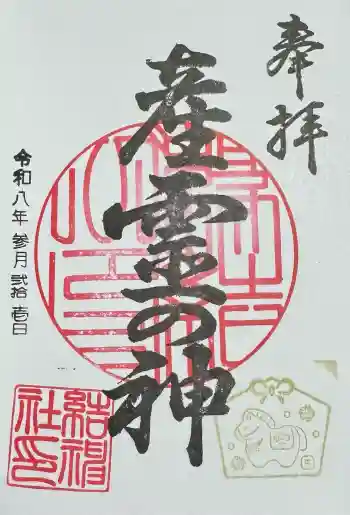 奉拝
産霊の神
令和八年 参月 弐拾壱日
結神社印